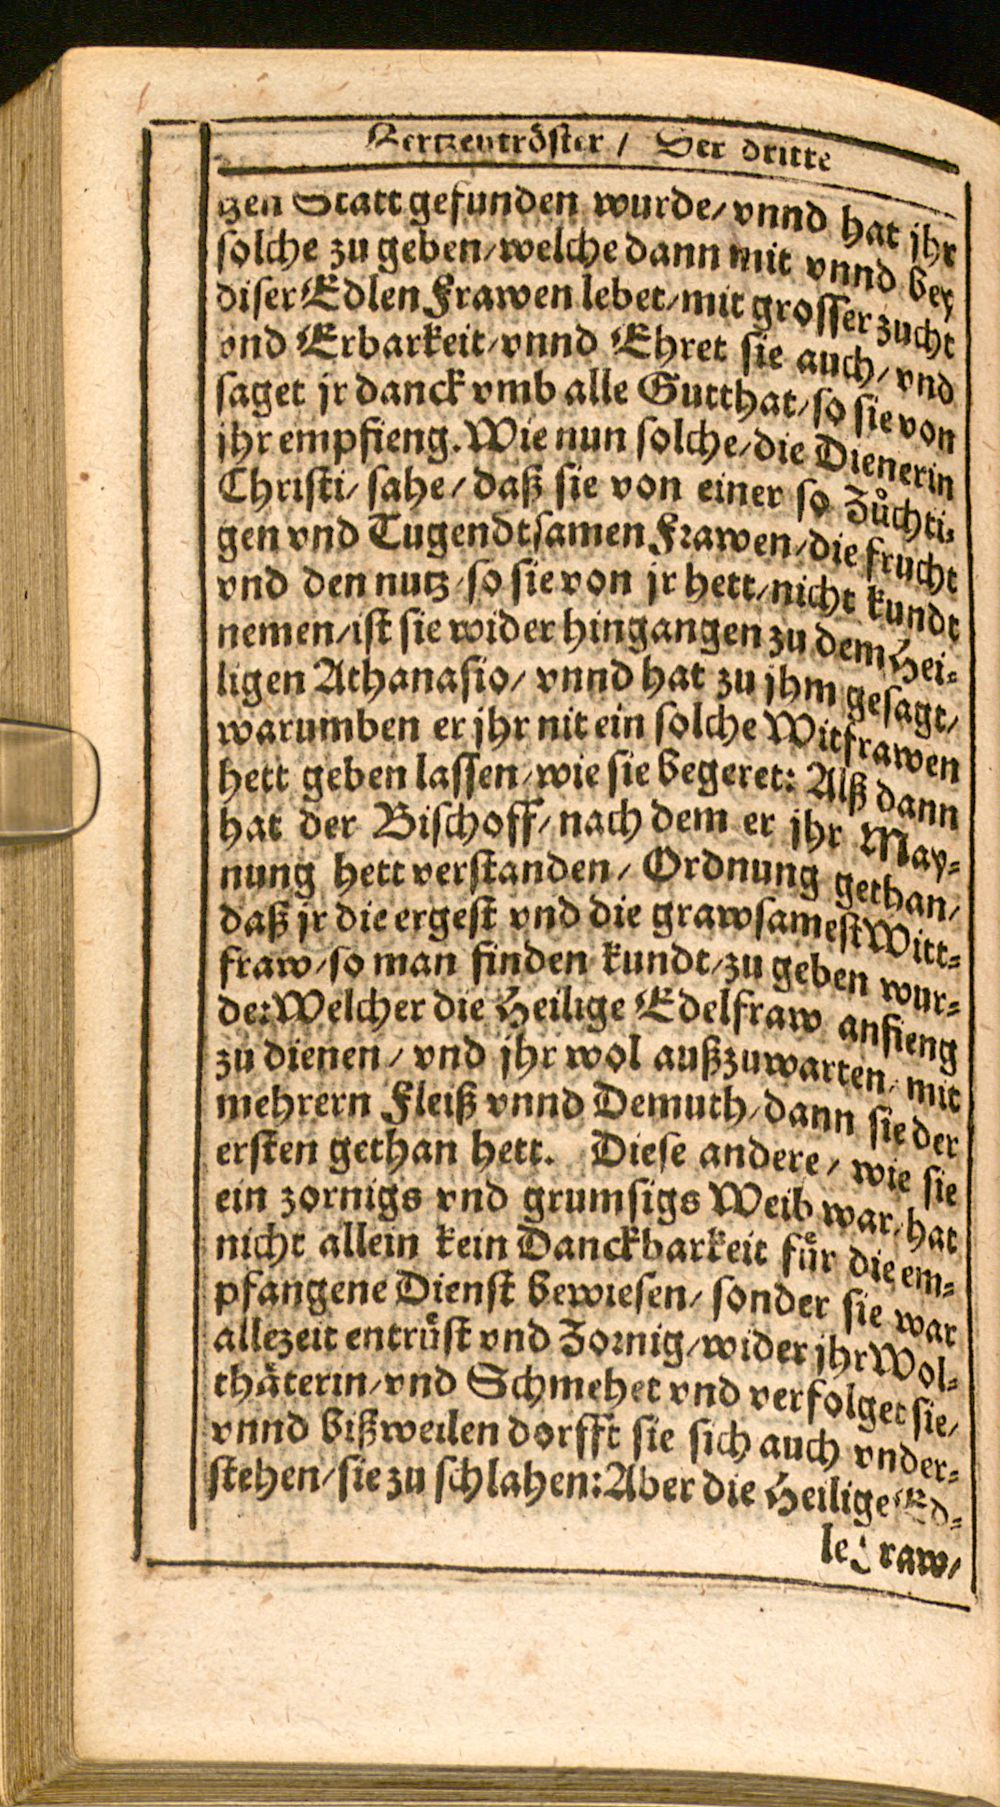 Hertzentröster / Der dritte
gen Statt gefunden wurde/ vnnd hat jhr
solche zu geben/ welche dann mit vnnd bey
diser Edlen Frawen lebet/ mit grosser zucht
vnd Erbarkeit/ vnnd Ehret sie auch/ vnd
saget jr danck vmb alle Gutthat/ so sie von
jhr empfieng. Wie nun solche/ die Dienerin
Christi/ sahe/ daß sie von einer so Zuͤchti-
gen vnd Tugendtsamen Frawen/ die frucht
vnd den nutz/ so sie von jr hett/ nicht kundt
nemen/ ist sie wider hingangen zu dem Hei-
ligen Athanasio/ vnnd hat zu jhm gesagt/
warumben er jhr nit ein solche Witfrawen
hett geben lassen/ wie sie begeret: Alß dann
hat der Bischoff/ nach dem er jhr May-
nung hett verstanden/ Ordnung gethan/
daß jr die ergest vnd die grawsamest Witt-
fraw/ so man finden kundt/ zu geben wur-
de: Welcher die Heilige Edelfraw anfieng
zu dienen/ vnd jhr wol außzuwarten/ mit
mehrern Fleiß vnnd Demuth/ dann sie der
ersten gethan hett. Diese andere/ wie sie
ein zornigs vnd grumsigs Weib war/ hat
nicht allein kein Danckbarkeit fuͤr die em-
pfangene Dienst bewiesen/ sonder sie war
allezeit entruͤst vnd Zornig/ wider jhr Wol-
thaͤterin/ vnd Schmehet vnd verfolget sie/
vnnd bißweilen dorfft sie sich auch vnder-
stehen/ sie zu schlahen: Aber die Heilige Ed-
le Fraw/